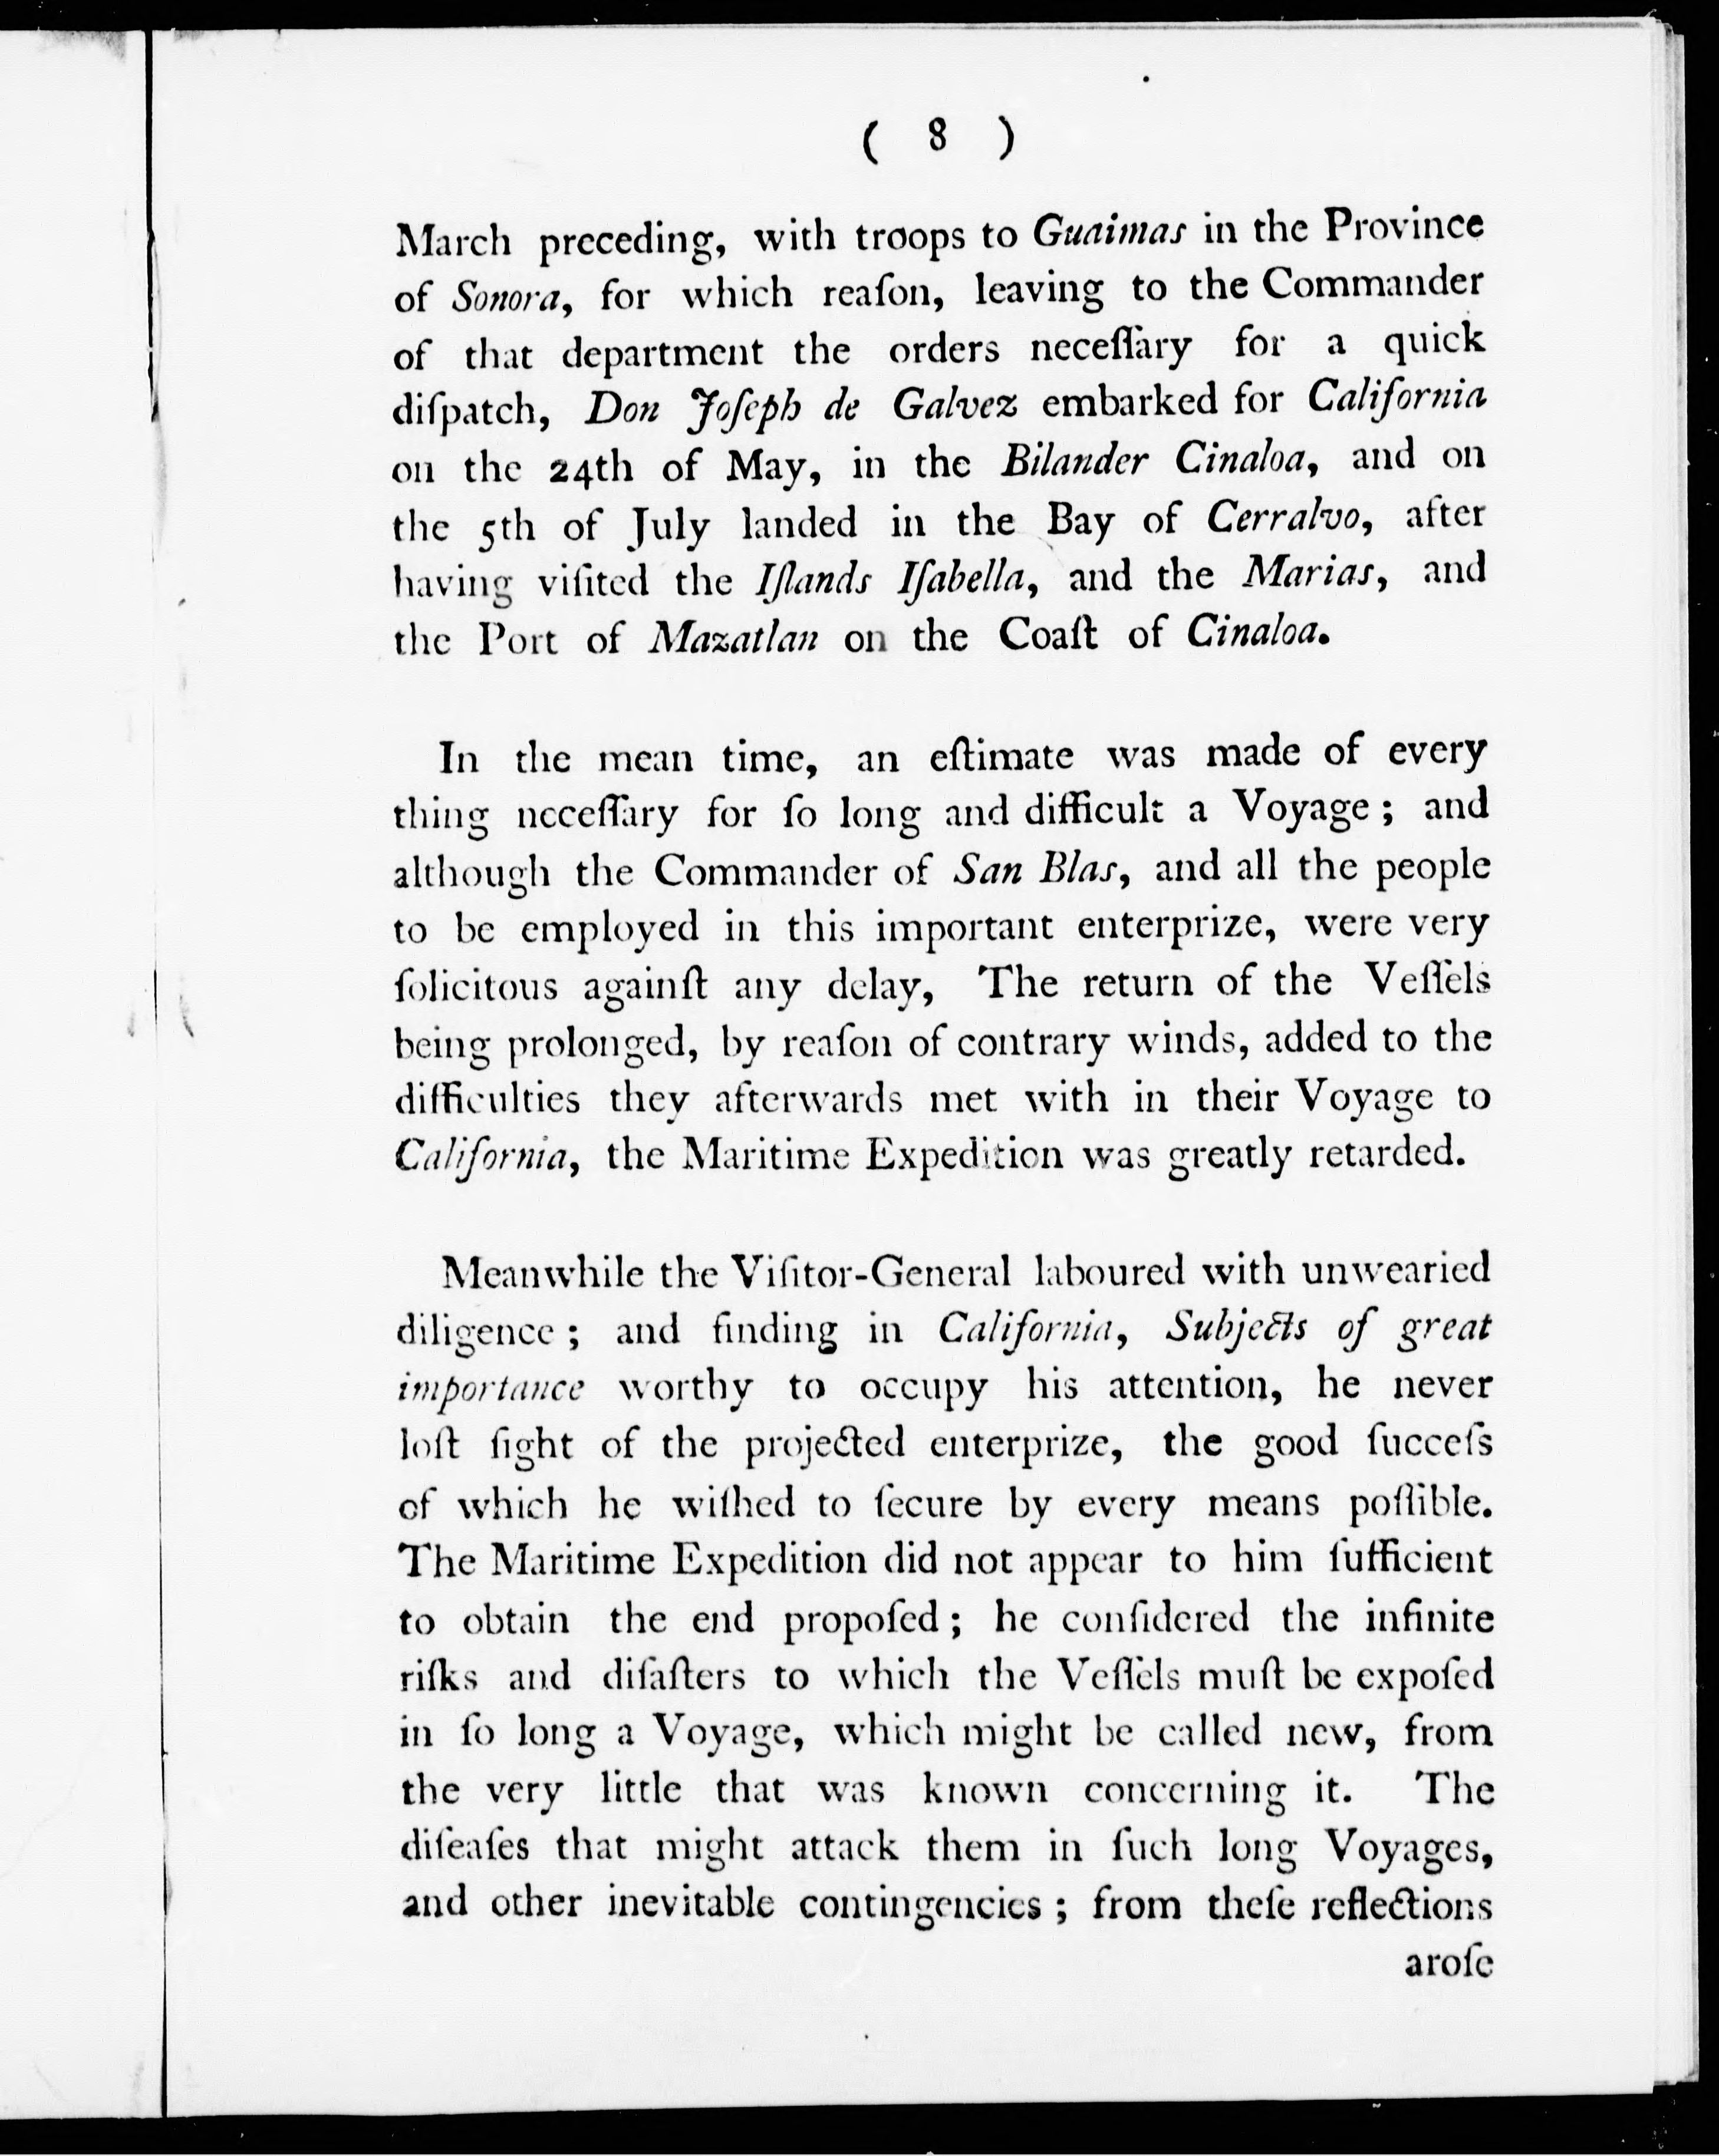 ( 8 )
March preceding, with troops to Guaimas in the Province
of Sonora, for which reaſon, leaving to the Commander
of that department the orders neceſſary for a quick
diſpatch, Don Joſeph de Galvez embarked for California
on the 24th of May, in the Bilander Cinaloa, and on
the 5th of July landed in the Bay of Cerralvo, after
having viſited the Iſlands Iſabella, and the Marias, and
the Port of Mazatlan on the Coaſt of Cinaloa.
In the mean time, an eſtimate was made of every
thing neceſſary for ſo long and difficult a Voyage ; and
although the Commander of San Blas, and all the people
to be employed in this important enterprize, were very
ſolicitous againſt any delay, The return of the Veſſels
being prolonged, by reaſon of contrary winds, added to the
difficulties they afterwards met with in their Voyage to
California, the Maritime Expedition was greatly retarded.
Meanwhile the Viſitor-General laboured with unwearied
diligence ; and finding in California, Subjects of great
importance worthy to occupy his attention, he never
loſt ſight of the projected enterprize, the good ſucceſs
of which he wiſhed to ſecure by every means poſſible.
The Maritime Expedition did not appear to him ſufficient
to obtain the end propoſed ; he conſidered the infinite
riſks and diſaſters to which the Veſſels muſt be expoſed
in ſo long a Voyage, which might be called new, from
the very little that was known concerning it. The
diſeaſes that might attack them in ſuch long Voyages,
and other inevitable contingencies ; from theſe reflections
aroſe